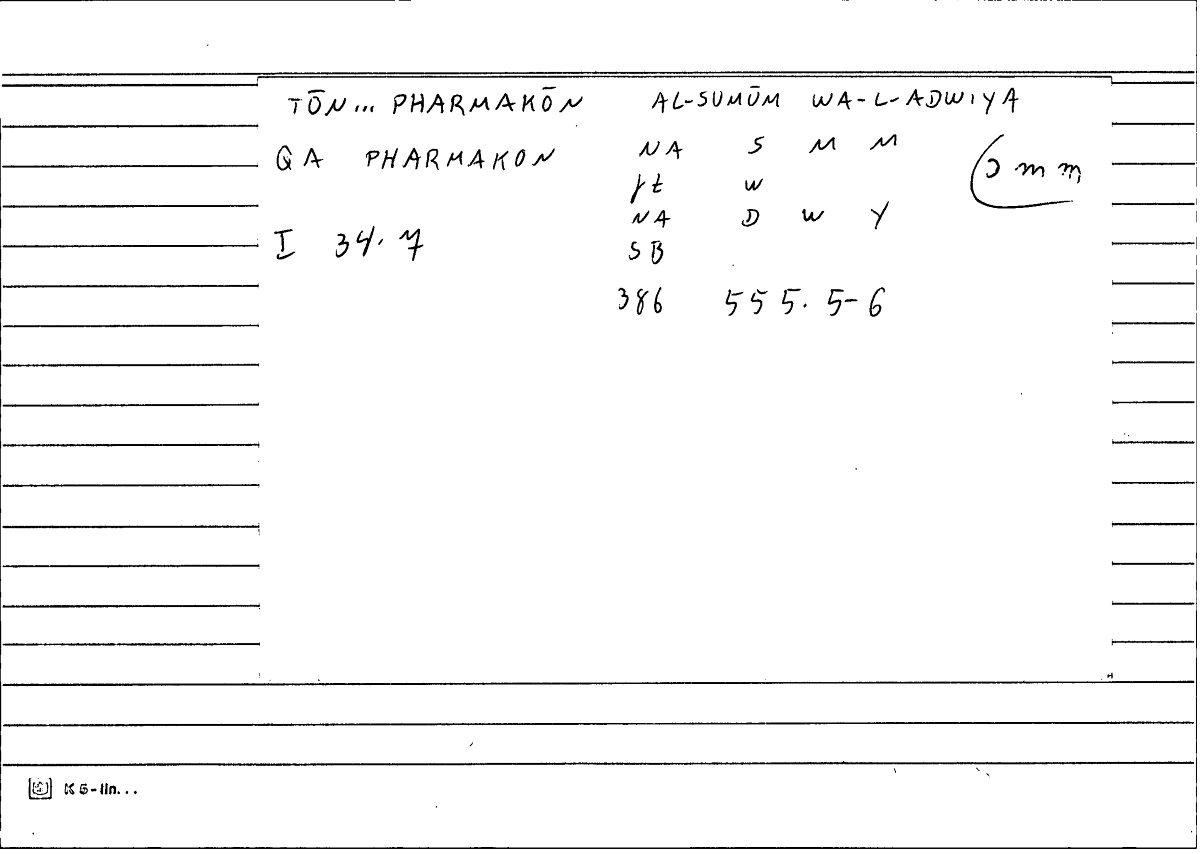 TŌN... PHARMAKŌN AL-SUMŪM WA-L-ADWIYA
QA PHARMAKON NA S M M
ft W
NA D W Y
I 34.7 SB
386 555.5-6
smm
K5-lin...